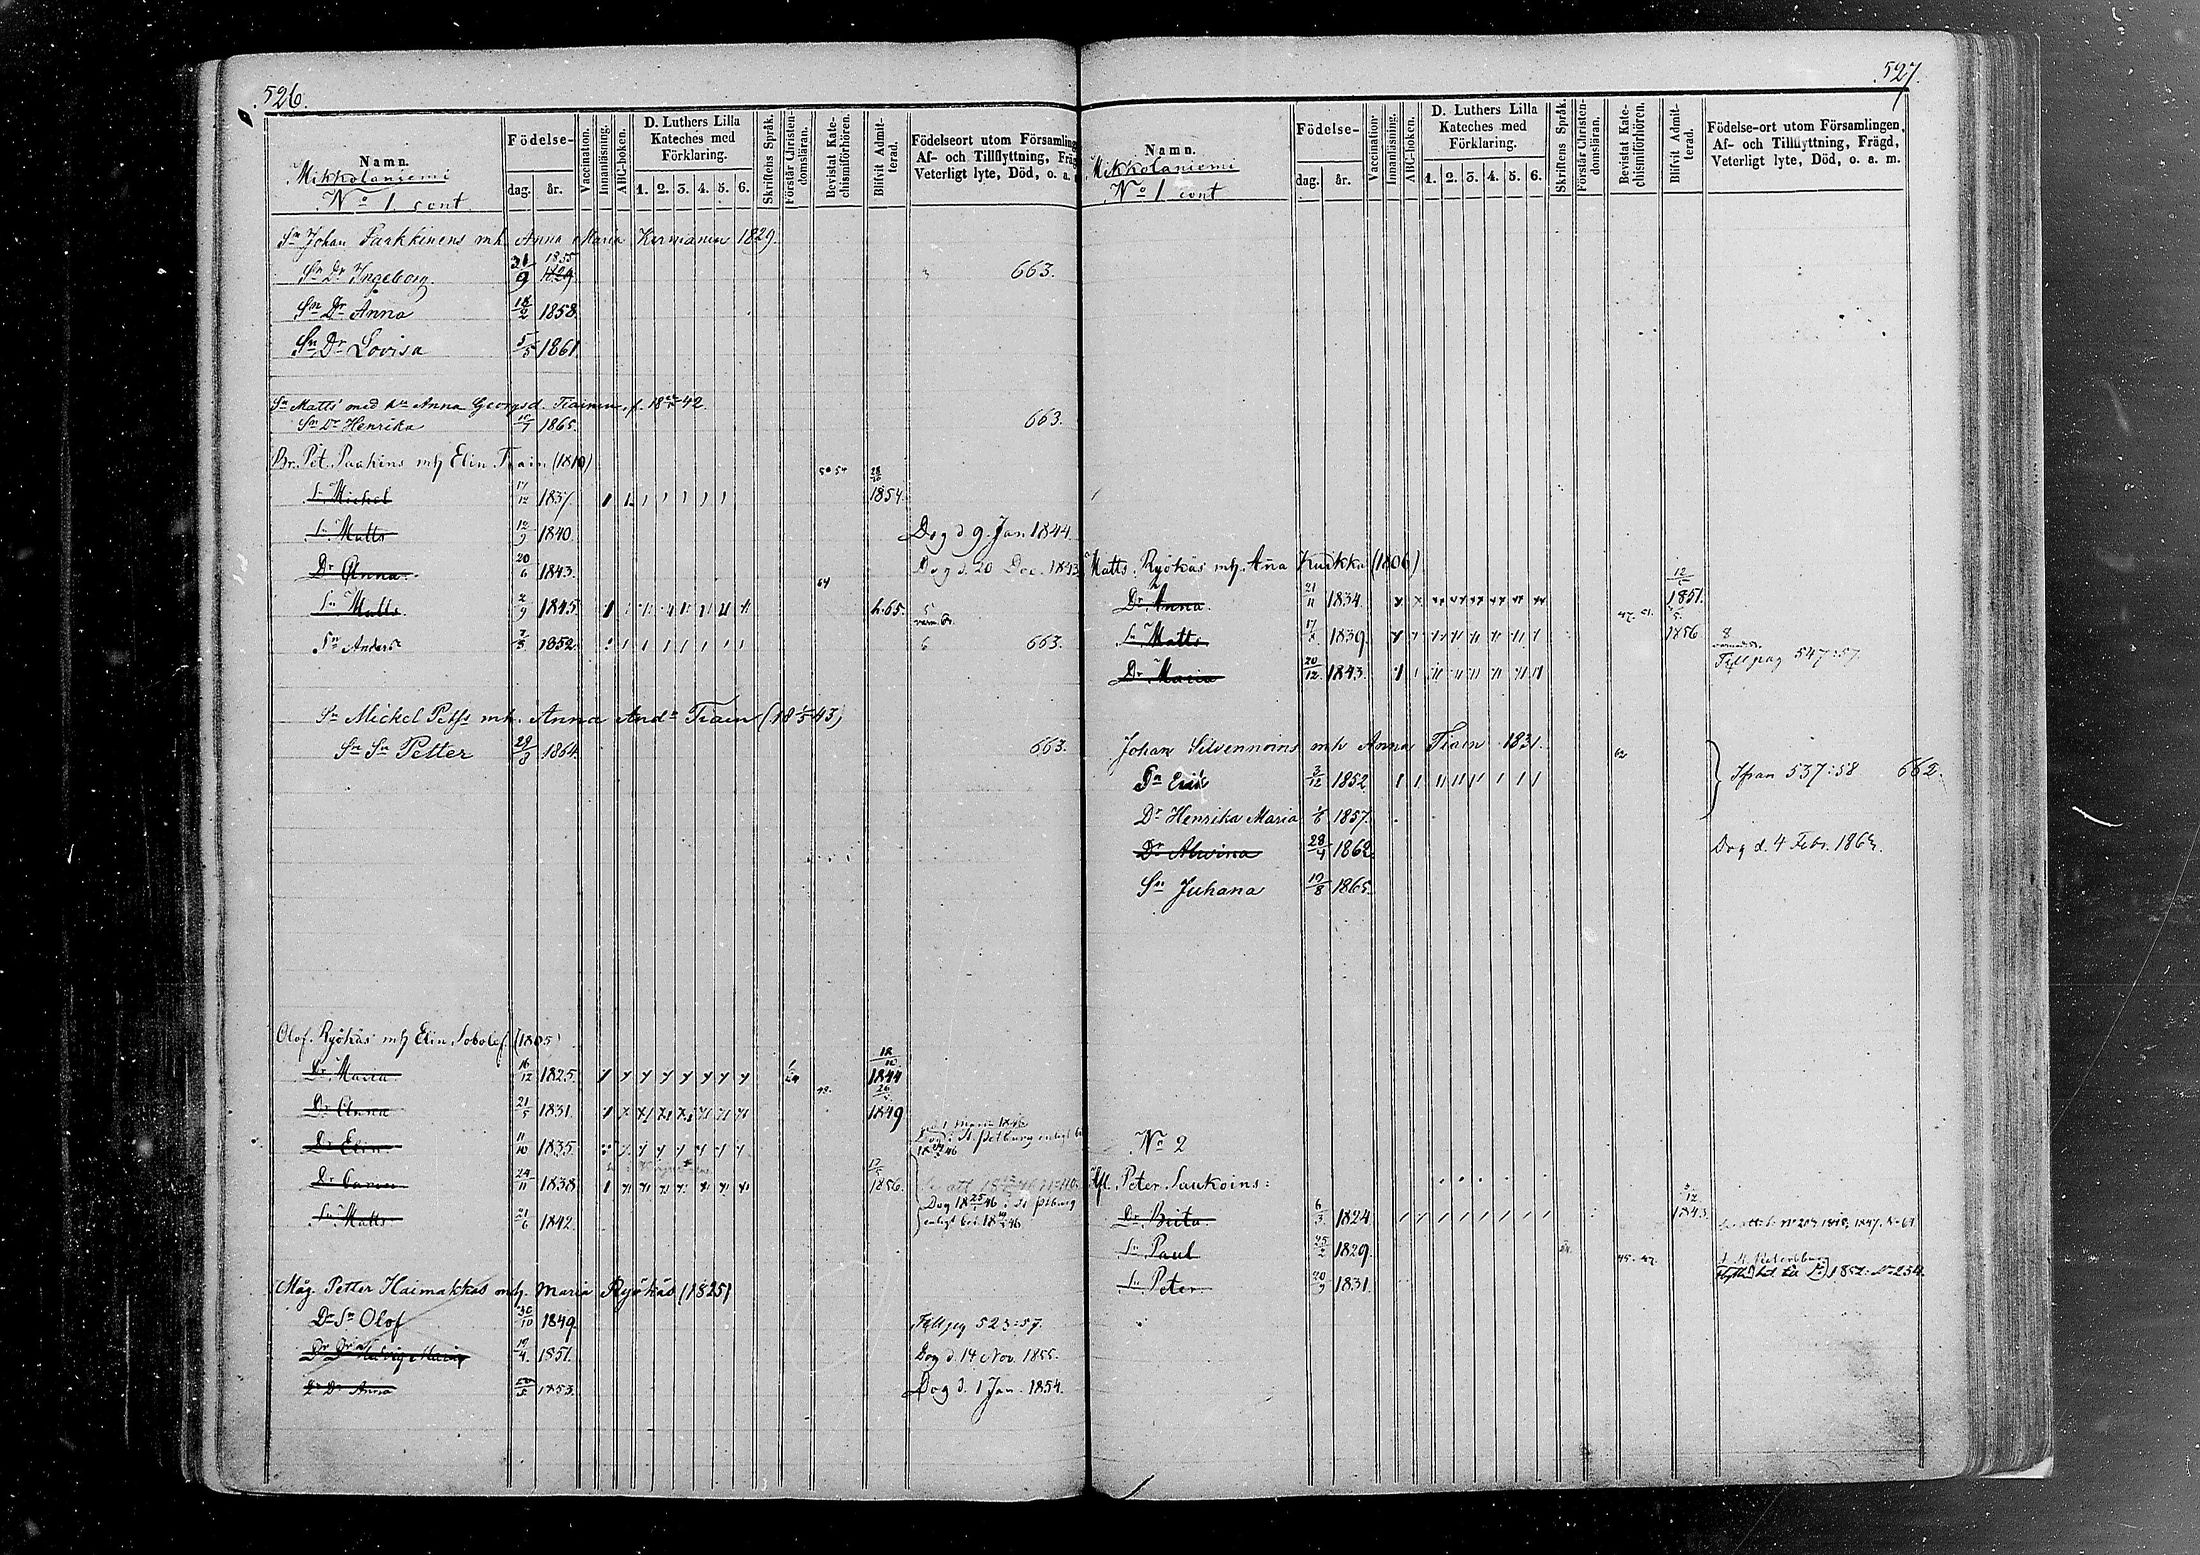 526.
Namn.
Mikkolaniemi
No 1 cont.
Födelse-
dag. år.
Vaccination.
Innanläsning.
ABC-boken.
D. Luthers Lilla
Kateches med
Förklaring.
1. 2. 3. 4. 5. 6.
Skriftens Språk.
Förstår Christen-
domsläran.
Bevistat Kate-
chismiförhören.
Blifvit Admit-
terad.
Födelseort utom Församling
Af- och Tillflyttning, Fräg
Veterligt lyte, Död, o. a.
Sn Johan mh Anna Maria 1829.
Sn Dr Ingeborg 21/9 1855 1829 663.
Sn Dr Anna 18/2 1858.
Sn Dr Lovisa 5/5 1861.
Sn Matts med Anna Georgsd. Tiainen, f. 1842.
Sn Dr Henrika 1865. 663.
Br. Pet. mh Elin Tiain (1810)
Sn Michel 17/12 1837 28/10 1854.
Sn Matts 12/9 1840. Dog d 9. Jan 1844.
Dr Anna 20/6 1843. Dog d. 20 Dec. 1843
Sn Matts 2/9 1845 64 h.65.
Sn Anders 1852 6 663.
Sn Mickel mh. Anna Andr Tiain (1843)
Sn Sn Petter 29/3 1864. 663.
Olof. Ryökäs mh Elin Sobolef (1805)
Dr Maria 16/12 1825. 1844
Dr Anna 21/5 1831. 1849
Dr Elin 11/10 1835. St. Petburg enligt
Dr 24/11 1838 1856.
Sn Matts 21/6 1842. Dog 1846 i St Ptburg
enligt bet. 1846
Måg. Petter Haimakkas mh. Maria Ryökäs (1825)
Dr Sn Olof 30/10 1849. Till pag 523:57.
Dr Dr Hedvig Maria 1851. Dog d. 14 Nov. 1855.
Dr Dr Anna 1853. Dog d. 1 Jan. 1854.
527.
Namn.
Mikkolaniemi
No 1 cont
Födelse-
dag. år.
Vaccination
Innanläsning.
ABC-boken.
D. Luthers Lilla
Kateches med
Förklaring.
1. 2. 3. 4. 5. 6.
Skriftens Språk.
Förstår Christen-
domsläran.
Bevistat Kate-
chismiförhören.
Blifvit Admit-
terad.
Födelse-ort utom Församlingen,
Af- och Tillflyttning, Frägd,
Veterligt lyte, Död, o. a. m.
Matts. Ryökäs mh. Anna Kurikka (1806)
Dr Anna 21/11 1834. 1851.
Sn Matts 1839. 47. 51. 1856
Dr Maria 20/12 1843. Till pag 547:57.
Johan Silvennoins mh Anna Tiain 1831. 62
Sn Erik 3/12 1852 Ifran 537:58 662.
Dr Henrika Maria 1857.
Dr Alwina 28/4 1862. Dog d. 4 Febr. 1863.
Sn Juhana 19/8 1865.
No 2
Peter Saukoins:
Dr Brita 6/3 1824 1843.
Sn Paul 25/2 1829. St. Petersburg
Sn Peter 20/9 1831. 1852: No 254.